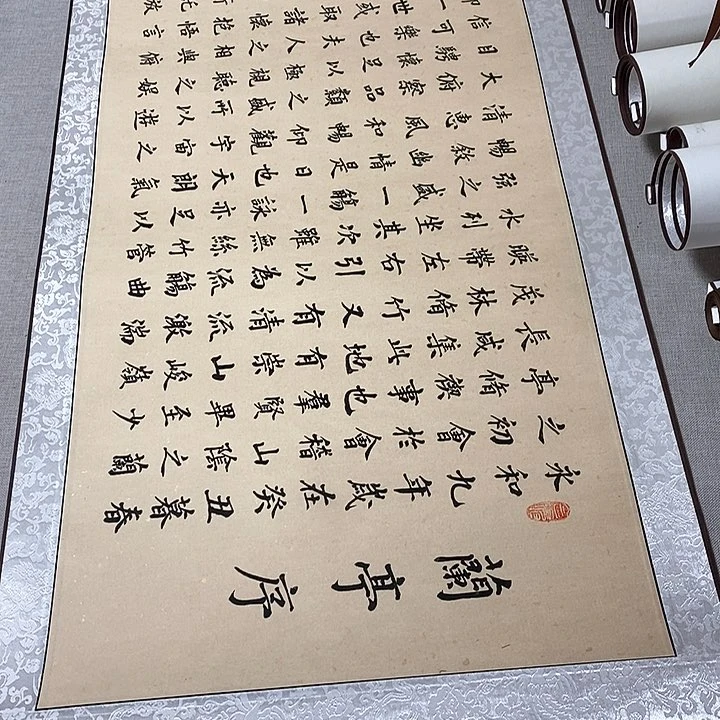 蘭亭序
永和九年歲在癸丑暮春
之初會於會稽山陰之蘭
亭脩禊事也羣賢畢至少
長咸集此地有崇山峻嶺
茂林脩竹又有清流激湍
暎帶左右引以為流觴曲
水列坐其次雖無絲竹管
弦之盛一觴一詠亦足以
暢敘幽情是日也天朗氣
清惠風和暢仰觀宇宙之
大俯察品類之盛所以遊
目騁懷足以極視聽之娛
信可樂也夫人之相與俯
仰一世或取諸懷抱悟言
放